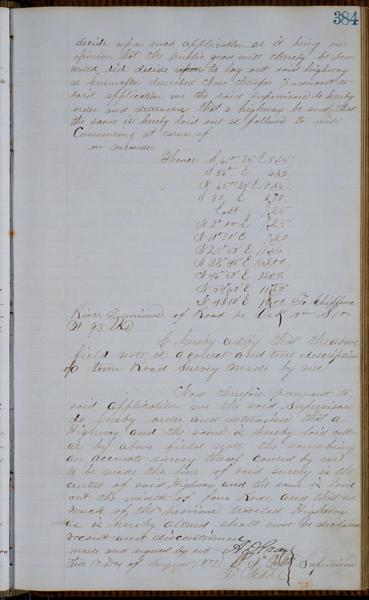 384
decide upon such application as it being our
opinion that the public good will thereby be pro
moted did decide upon to lay out said highway
as hereinafter described Now therefore pursuant to
said application we the said Supervisors do hereby
order and determine that a highway be and that
the same is hereby laid out as follows to wit
Commencing at corner of
on meander
Thence S 41° 35 E 8.25
S 86° E
N 65° 20 E
S 80 E 2.70
East 1.25
N 2° 00 E 1.25
N 11° 30 E 7.20
N 20° E
N 38° 45 E
N 46° 30 E
N E
N 43° 10 E To Chippewa
River of Road
I hereby certify that the above
field note is a correct and true description
of town Road Survey made by me
Now therefore pursuant to
said application we the said Supervisors
do hereby order and determine that a
Highway and the same is hereby laid out
as by above field note the same being
an accurate survey thereof caused by us
to be made the line of said survey is the
center of said Highway and the same is laid
out the width of four Rods and that so
much of the previous traveled Highway
as is hereby altered shall now be declared
vacant and discontinued
made and signed by us
this Day of August 1872
Supervisors